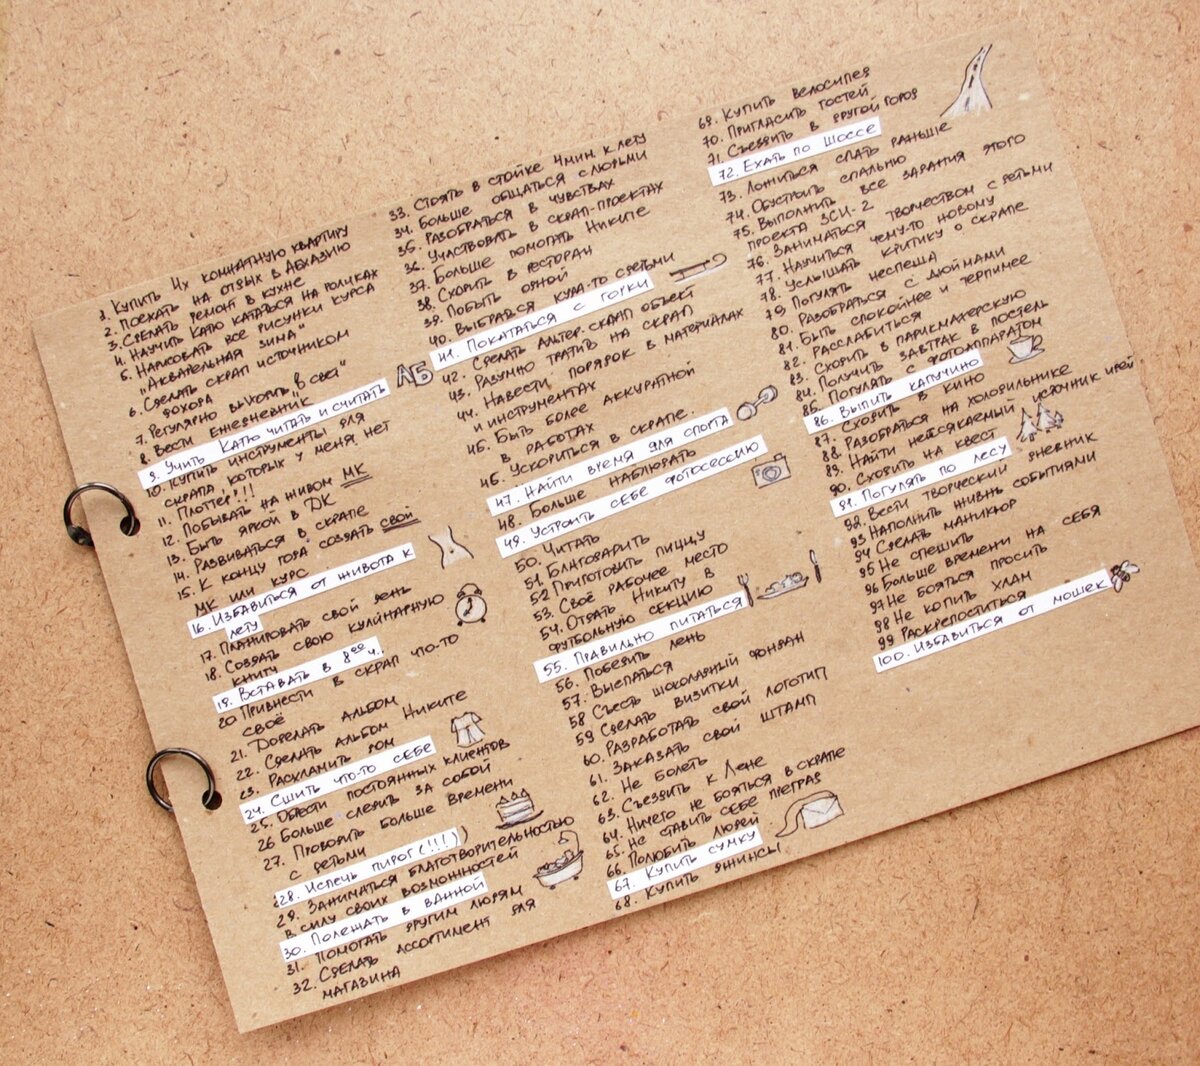 1. Купить 4х комнатную квартиру
2. Поехать на отдых в Абхазию
3. Сделать ремонт в кухне
4. Научить Катю кататься на роликах
5. Нарисовать все рисунки курса
"Акварельная зима"
6. Сделать скрап источником
дохода
7. Регулярно выходить "в свет"
8. Вести ежедневник
9. Учить Катю читать и считать
АБ
10. Купить инструменты для
скрапа, которых у меня нет
11. Плоттер!!!
12. Побывать на живом МК
13. Быть яркой в ДК
14. Развиваться в скрапе
15. К концу года создать свой
МК или курс
16. Избавиться от живота к
лету
17. Планировать свой день
18. Создать свою кулинарную
книгу
19. Вставать в 8⁰⁰ ч.
20 Привнести в скрап что-то
своё
21. Доделать альбом
22. Сделать альбом Никите
23. Расхламить дом
24. Сшить что-то себе
25. Обрести постоянных клиентов
26 Больше следить за собой
27. Проводить больше времени
с детьми
28. Испечь пирог (!!!)
29. Заниматься благотворительностью
в силу своих возможностей
30. Полежать в ванной
31. Помогать другим людям
32. Сделать ассортимент для
магазина
33. Стоять в стойке 4 мин. к лету
34. Больше общаться с людьми
35. Разобраться в чувствах
36. Участвовать в скрап-проектах
37. Больше помогать Никите
38. Сходить в ресторан
39. Побыть одной
40. Выбраться куда-то с детьми
41. Покататься с горки
42. Сделать альтер. скрап объект
43. Разумно тратить на скрап
44. Навести порядок в материалах
и инструментах
45. Быть более аккуратной
в работах
46. Ускориться в скрапе.
47. Найти время для спорта
48. Больше наблюдать
49. Устроить себе фотосессию
50. Читать
51. Благодарить
52 Приготовить пиццу
53. Своё рабочее место
54. Отдать Никиту в
футбольную секцию
55. Правильно питаться
56. Победить лень
57. Выспаться
58 Съесть шоколадный фондан
59 Сделать визитки
60. Разработать свой логотип
61. Заказать свой штамп
62. Не болеть
63. Съездить к Лене
64. Ничего не бояться в скрапе
65. Не ставить себе преград
66. Полюбить людей
67. Купить сумку
68. Купить джинсы
69. Купить велосипед
70. Пригласить гостей
71. Съездить в другой город
72. Ехать по шоссе
73. Ложиться спать раньше
74. Обустроить спальню
75. Выполнить все задания этого
проекта ЗСИ-2
76. Заниматься творчеством с детьми
77. Научиться чему-то новому
78. Услышать критику о скрапе
79 Погулять неспеша
80. Разобраться с дюймами
81. Быть спокойнее и терпимее
82. Расслабиться
83. Сходить в парикмахерскую
84. Получить завтрак в постель
85. Погулять с фотоаппаратом
86. Выпить капучино
87. Сходить в кино
88. Разобраться на холодильнике
89. Найти неиссякаемый источник идей
90. Сходить на квест
91. Погулять по лесу
92. Вести творческий дневник
93 Наполнить жизнь событиями
94 Сделать маникюр
95 Не спешить
96 Больше времени на себя
97 Не бояться просить
98 Не копить хлам
99 Раскрепоститься
100. Избавиться от мошек